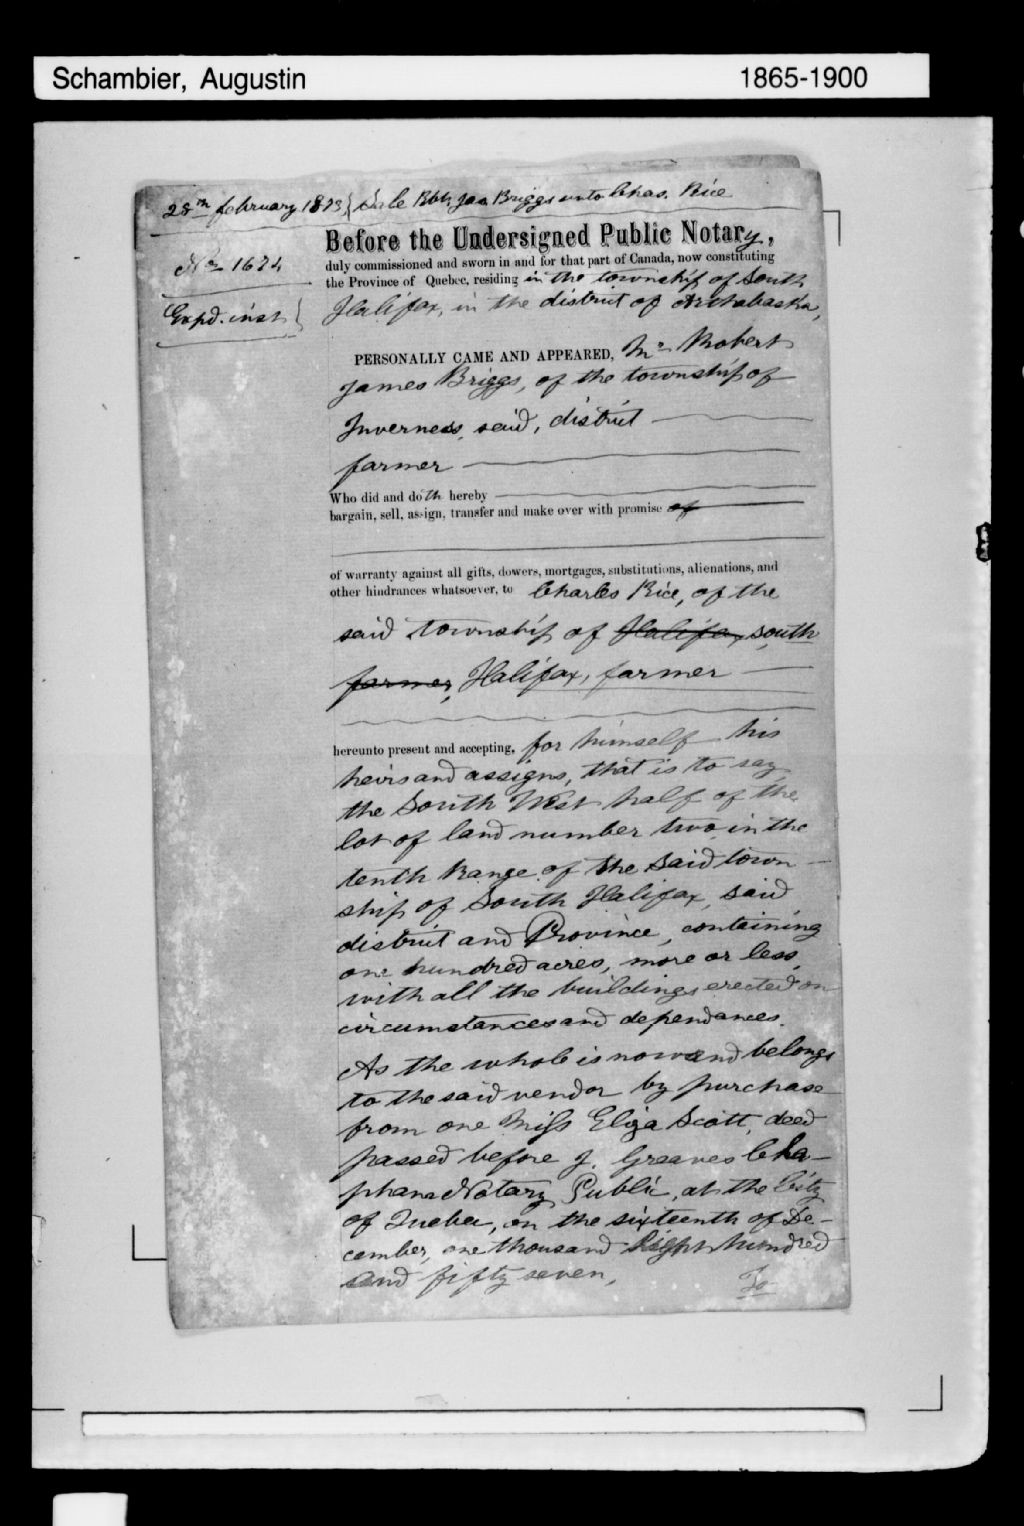 Schambier, Augustin 1865-1900
28th february 1873 } Sale Robt. Jas. Briggs unto Chas. Rice
Before the Undersigned Public Notary,
duly commissioned and sworn in and for that part of Canada, now constituting
No 1674
the Province of Quebec, residing in the township of South
Halifax, in the district of Arthabaska,
Expd. inst }
PERSONALLY CAME AND APPEARED, Mr Robert
James Briggs, of the township of
Inverness, said, district
farmer
Who did and doth hereby
bargain, sell, assign, transfer and make over with promise of
of warranty against all gifts, dowers, mortgages, substitutions, alienations, and
other hindrances whatsoever, to Charles Rice, of the
said township of Halifax, south
farmer, Halifax, farmer
hereunto present and accepting, for himself his
heirs and assigns, that is to say,
the South West half of the
lot of land number two in the
tenth Range of the said town
ship of South Halifax, said
district and Province, containing
one hundred acres, more or less,
with all the buildings erected on
circumstances and dependances.
As the whole is now and belongs
to the said vendor by purchase
from one Miss Eliza Scott, deed
passed before J. Greaves Cla-
phane Notary Public, at the City
of Quebec, on the sixteenth of De-
cember, one thousand Eight hundred
and fifty seven,
To